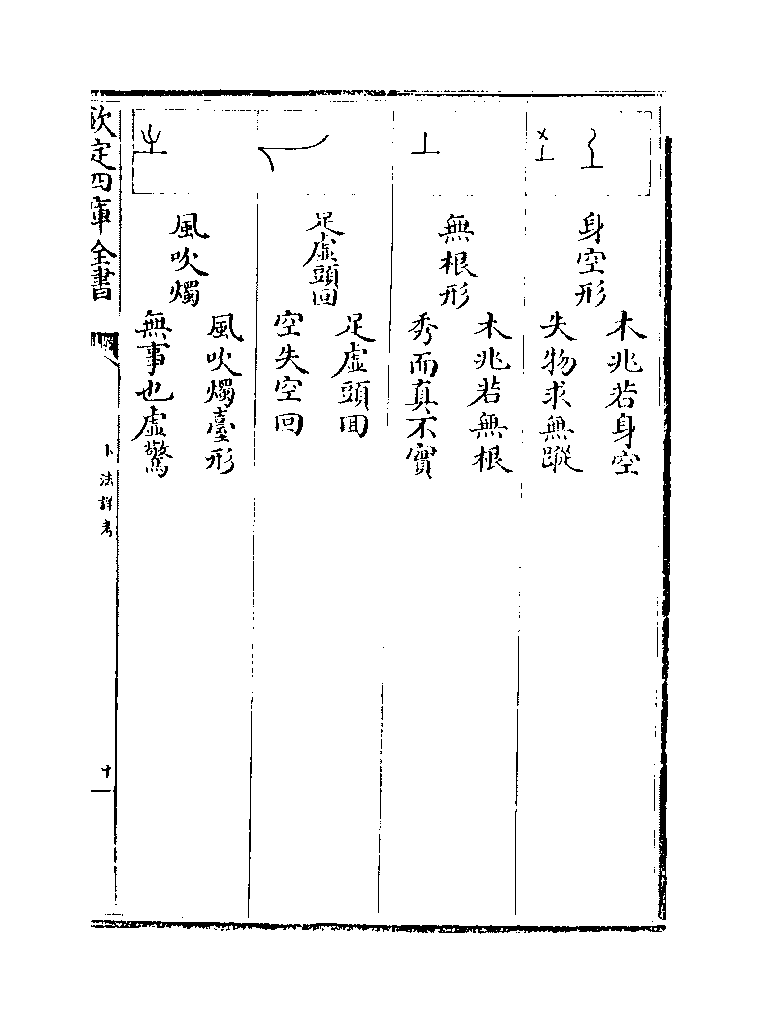 身空形
木兆若身空
失物求無蹤
無根形
木兆若無根
秀而真不實
足虛頭回
足虛頭回
空失空回
風吹燭
風吹燭臺形
無事也虛驚
欽定四庫全書
卜法詳考
十